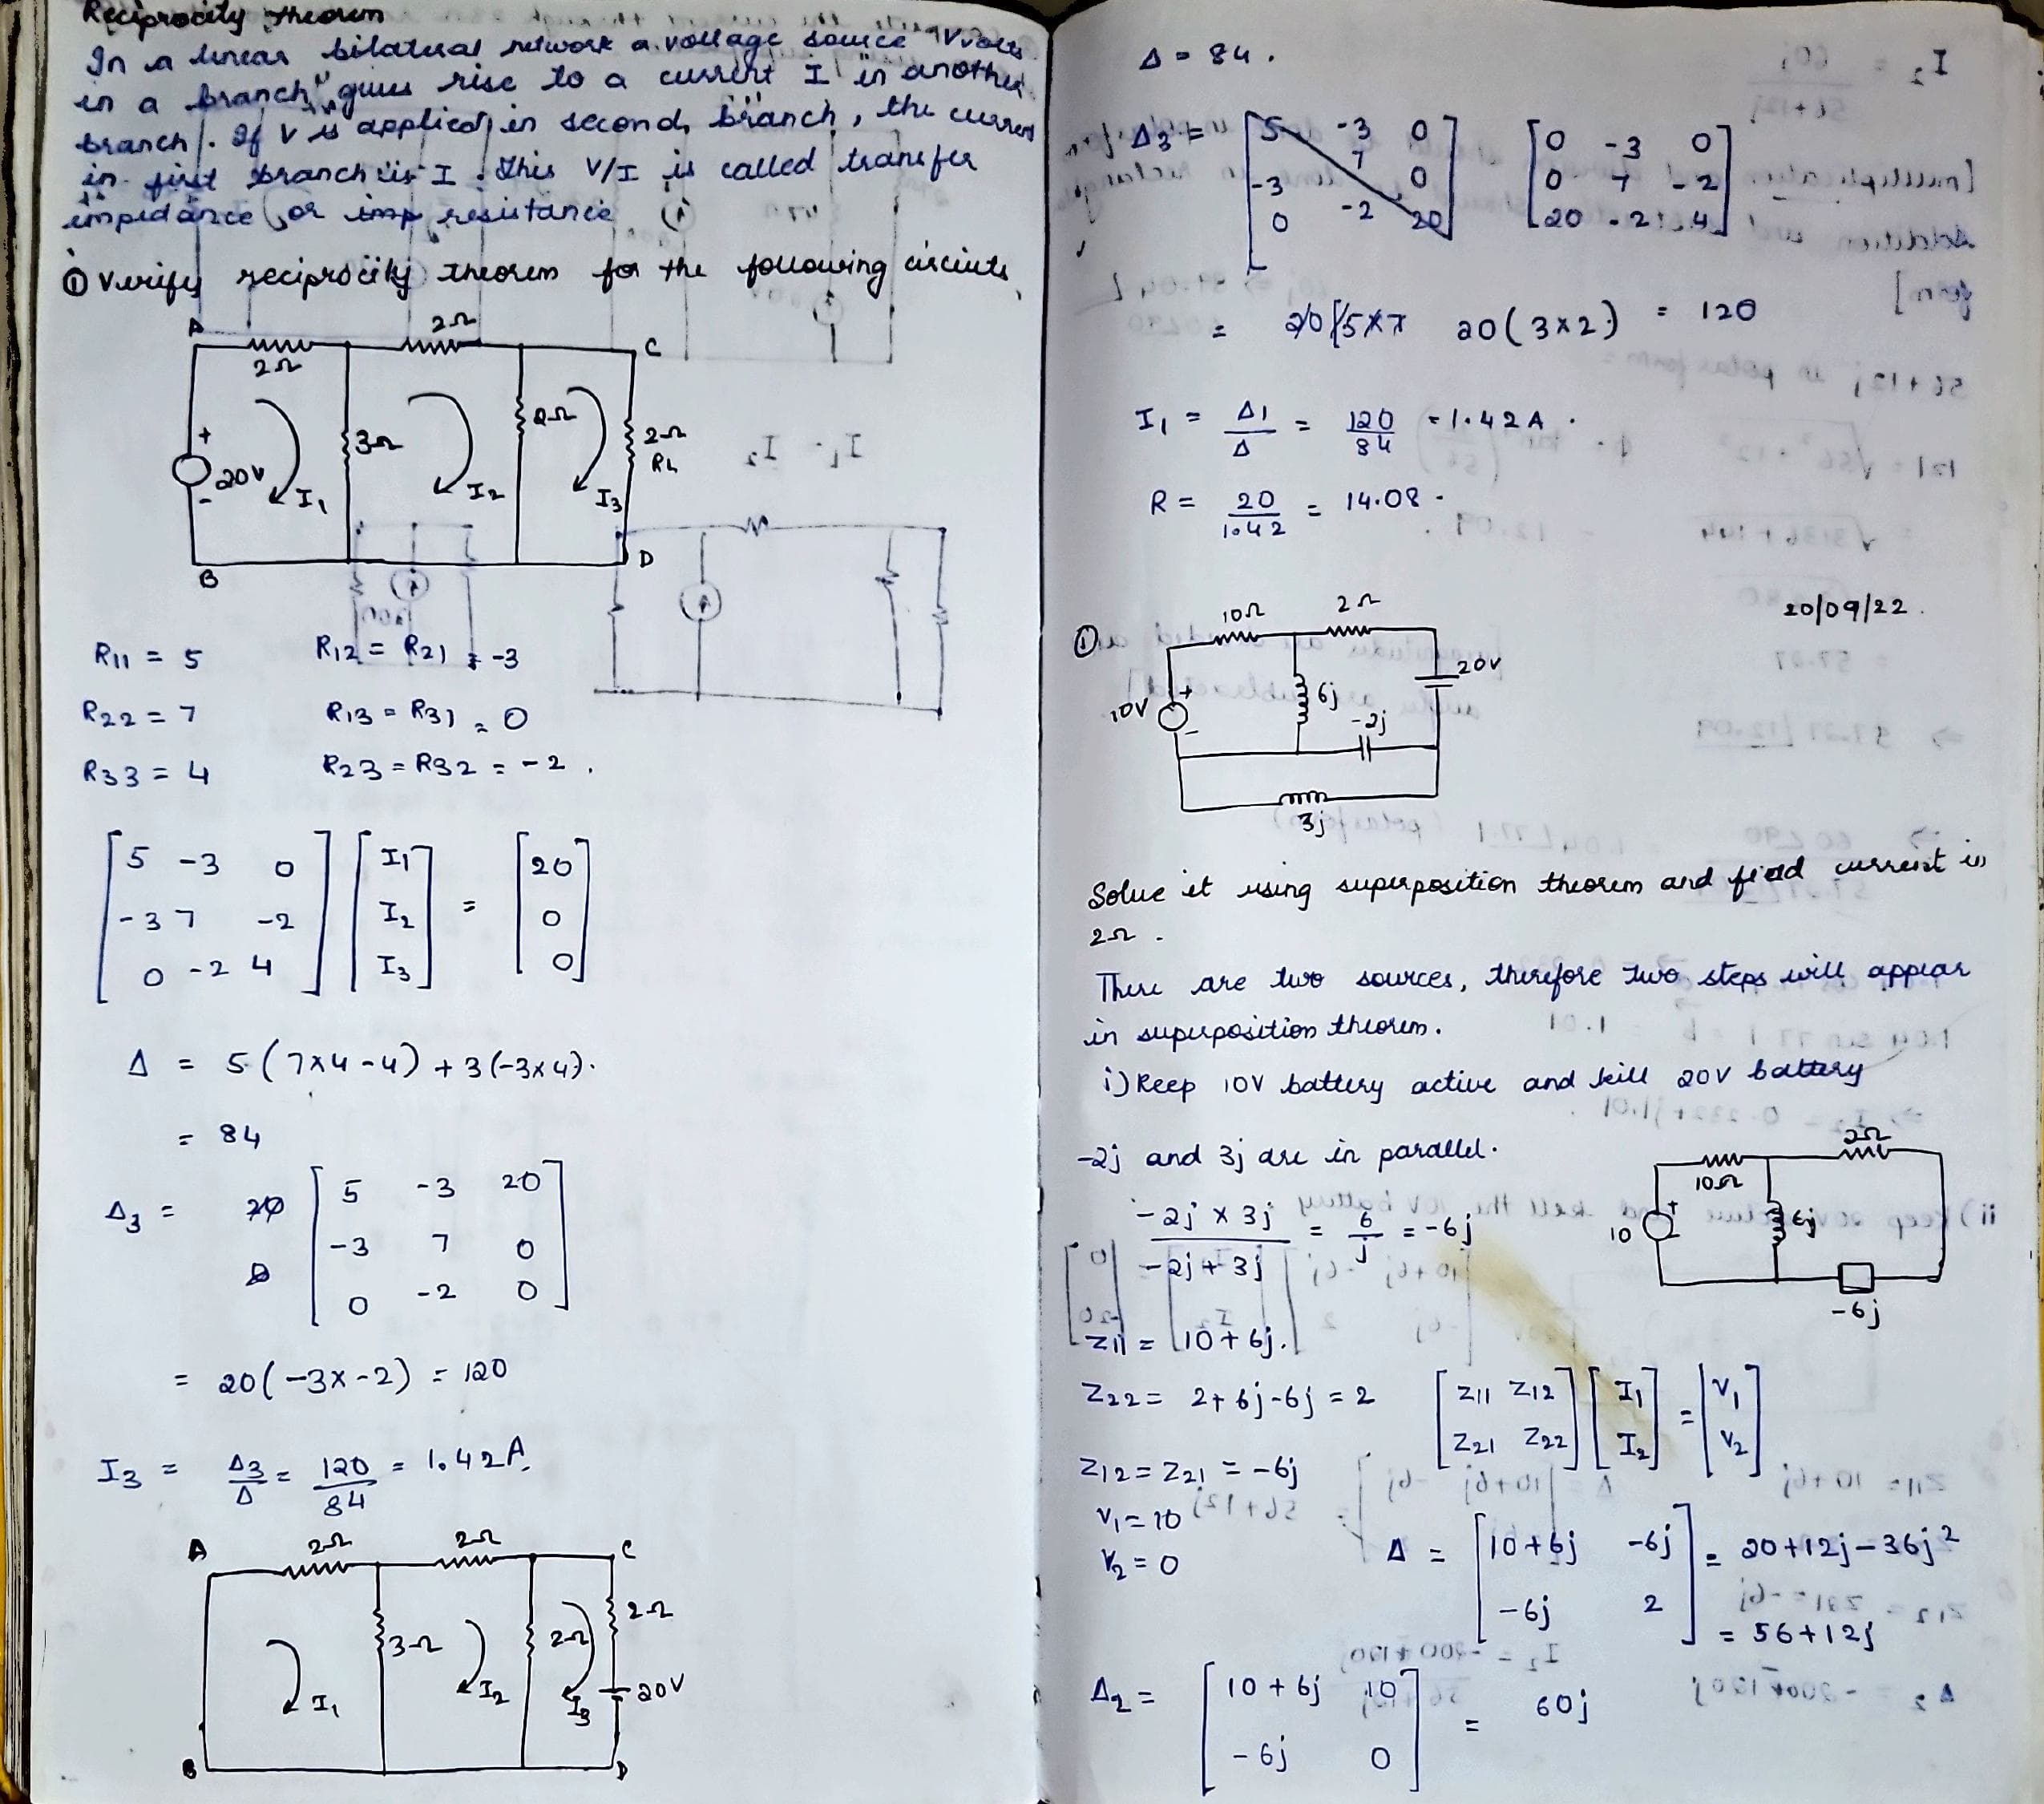 Reciprocity theorem
In a linear bilateral network a voltage source V volts
in a branch gives rise to a current I in another
branch. If V is applied in second branch, the current
in first branch is I. This V/I is called transfer
impedance or resistance
① Verify reciprocity theorem for the following circuits
A 2Ω 2Ω C
3Ω 2Ω 2Ω RL
+ 20V - I1 I2 I3
B D
R11 = 5 R12 = R21 = -3
R22 = 7 R13 = R31 = 0
R33 = 4 R23 = R32 = -2.
[5 -3 0] [I1] [20]
[-3 7 -2] [I2] = [0]
[0 -2 4] [I3] [0]
Δ = 5(7x4-4) + 3(-3x4).
= 84
Δ3 = [5 -3 20]
[-3 7 0]
[0 -2 0]
= 20(-3x-2) = 120
I3 = Δ3/Δ = 120/84 = 1.42A.
A 2Ω 2Ω C
3Ω 2Ω 2Ω
I1 I2 I3 20V
B D
Δ = 84.
Δ3 = [5 -3 0] [0 -3 0]
[-3 7 0] [0 7 -2]
[0 -2 20] [20 -2 4]
= 20(3x2) = 120
I1 = Δ1/Δ = 120/84 = 1.42A.
R = 20/1.42 = 14.08
20/09/22.
① 10Ω 2Ω
10V + - 6j 20V
-2j
3j
Solve it using superposition theorem and find current in
2Ω.
There are two sources, therefore two steps will appear
in superposition theorem.
i) Keep 10V battery active and kill 20V battery
-2j and 3j are in parallel.
-2j x 3j / -2j + 3j = 6/j = -6j
10Ω 2Ω
10 + - 6j
-6j
Z11 = 10+6j.
Z22 = 2+6j-6j = 2
[Z11 Z12] [I1] = [V1]
[Z21 Z22] [I2] [V2]
Z12 = Z21 = -6j
V1 = 10
V2 = 0
Δ = [10+6j -6j] = 20+12j-36j²
[-6j 2] = 56+12j
Δ2 = [10+6j 10] = 60j
[-6j 0]